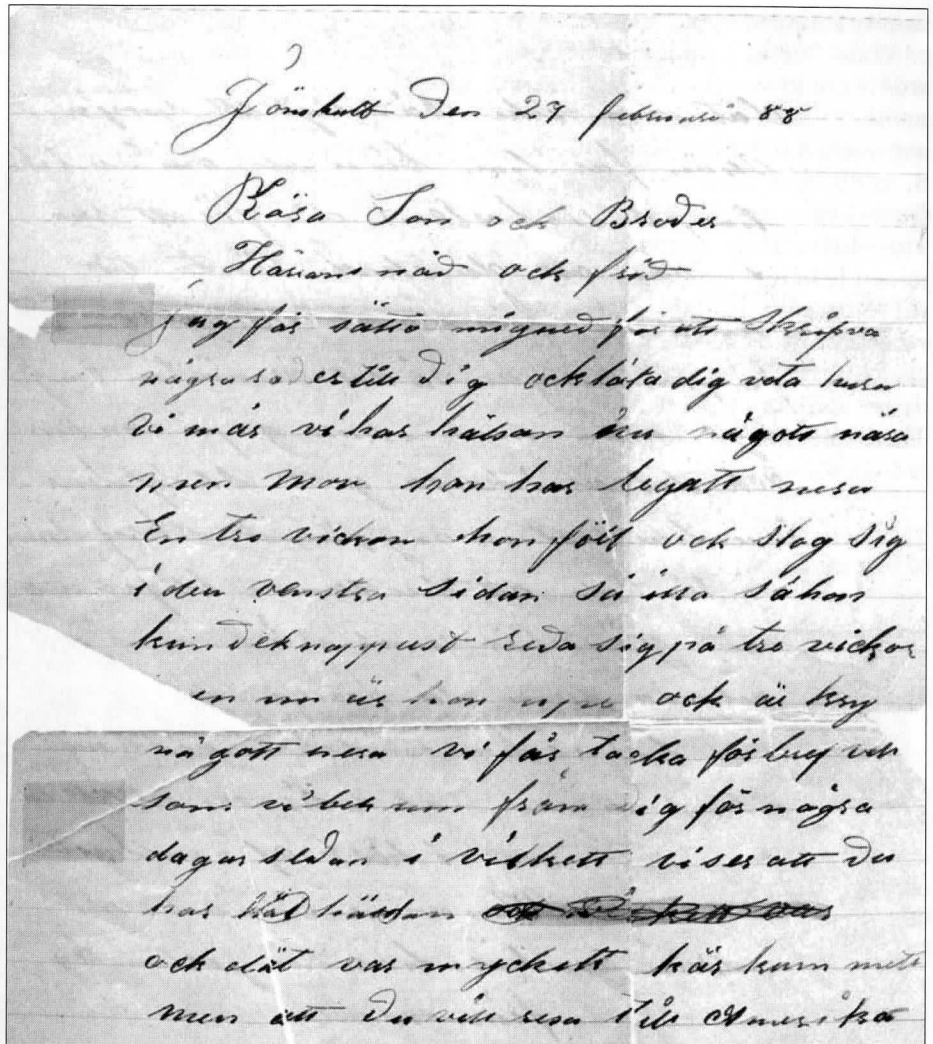 Jönshult Den 27 februari 88
Kära Son ock Broder
Härans nåd ock frid
Jag får sätta mig ned för att Skrifva
några rader till Dig ock låta dig veta huru
Vi mår vi har hälsan nu någott nära
men Mor hon har legatt nera
En tre vickor hon föll ock Slog Sig
i den venstra Sidan så illa så hon
kunde knappast reda sig på tre vickor
en nu är hon uppe ock är kry
någott nera vi får tacka för brefvett
som vi bekum från Dig för några
dagar sedan i vilkett viser att Du
har häldsan
ock dät var myckett kär kum mett
men att Du vill resa till Amerika